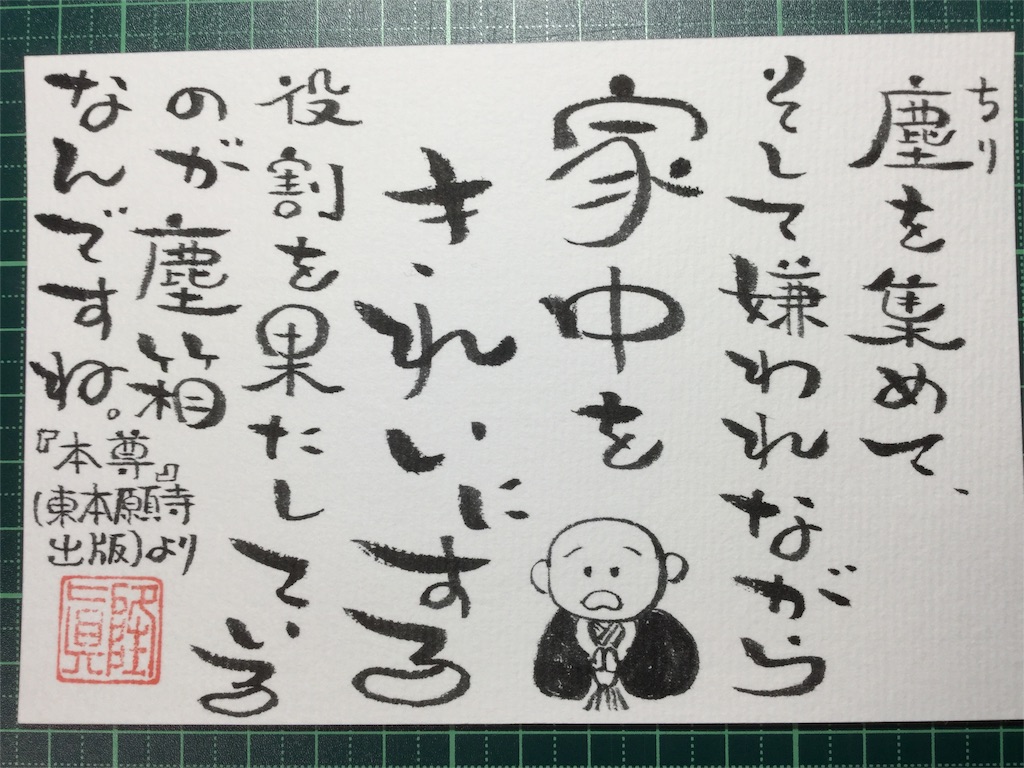 ちり
塵を集めて、
そして嫌われながら
家中を
きれいにする
役割を果たしている
のが塵箱
なんですね。
『本尊』
(東本願寺
出版)より